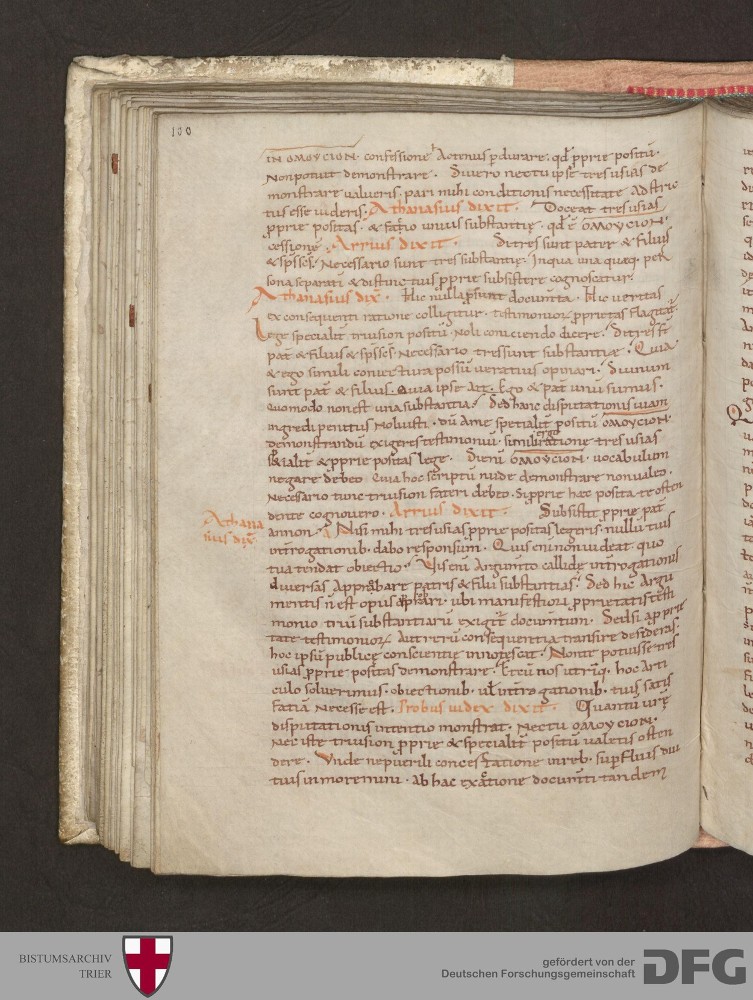 130
IN OMOYCION · confessione hactenus pdurare · qd pprie positu ·
Non potuit demonstrare · Si uero nec tu ipse tres usias de
monstrare ualueris · pari mihi conditionis necessitate adstric
tus esse uideris · Athanasius dixit · Doceat tres usias
pprie positas · & unius substantie · qd e OMOYCION
cessione · Arrius dixit · Si tres sunt pater & filius
& sps scs · Necessario sunt tres substantie · In qua una quaeq · per
sona separati & distinc tius pprie subsistere cognoscatur ·
Athanasius dix · Hic nulla psunt documta · Hic ueritas
ex consequenti ratione colligitur · testimonior pprietas flagitat
Lege specialit triusion positu · Noli coniciendo dicere · Si tres st
pat & filius & sps scs · Necessario tres sunt substantiae · Quia
& ego simili conuertura possu ueratius opinari · Si unum
sunt pat & filius · Quia ipse ait · Ego & pat unu sumus ·
Quomodo non est una substantia · Sed hanc disputationis uiam
ingredi penitus noluisti · du a me specialit positu OMOYCION ·
demonstrandu exigeres testimoniu · simili ratione tres usias
specialit & pprie positas lege · Si enim OMOYCION · uocabulum
negare debeo quia hoc scriptu nude demonstrare non ualeo ·
Necessario tunc triusion fateri debeo · Si pprie hec posita te osten
dente cognouero · Arrius dixit · Subsistit pprie pat
Athana
sius dix
annon · Nisi mihi tres usias pprie positas legeris · nullu tuis
introgationib · dabo responsum · Quis eni non uideat · quo
tua tendat obiectio · Vis eni argumto callide introgationis
diuersas approbare patris & filii substantias · Sed hic argu
mentis n est opus · ubi manifestior pprietatis testi
monio triu substantiaru exigit documtum · Sed si a pprie
tate testimonior aut reru consequentia transire desideras ·
hoc ipsu publice conscientie innotescat · Non te potuisse tres
usias pprie positas demonstrare · Et cu nos utriq · hoc arti
culo soluerimus · obiectionib · ul introgationib · tuis satis
fatia necesse est · Probus iudex dixit · Quantu urae
disputationis intentio monstrat · Nec tu OMOYCION ·
Nec iste triusion pprie & specialit positu ualetis osten
dere · Vnde ne puerili concertatione in reb · supfluis diu
tius inmoremini · Ab hac exactione documti tandem
BISTUMSARCHIV
TRIER
gefördert von der
Deutschen Forschungsgemeinschaft
DFG